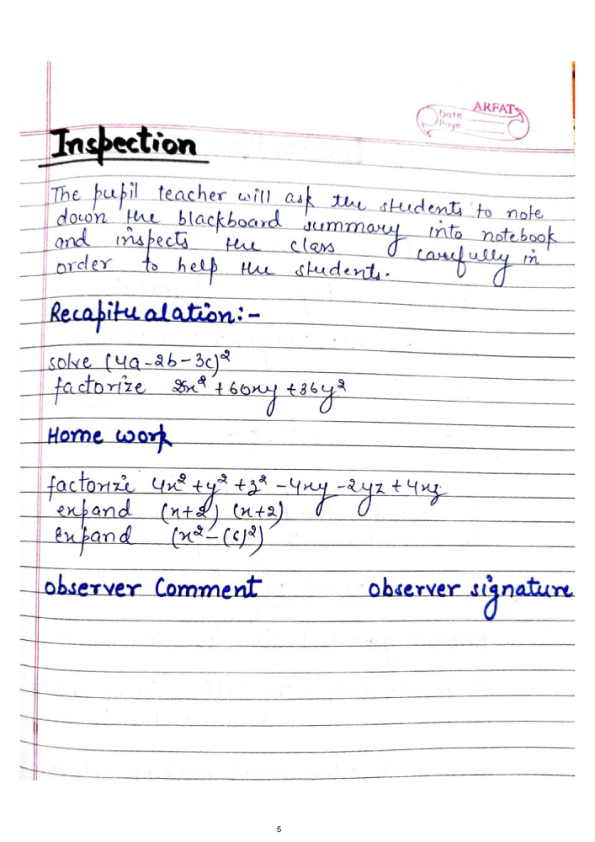 ARFAT
Date
Page
Inspection
The pupil teacher will ask the students to note
down the blackboard summary into notebook
and inspects the class carefully in
order to help the students.
Recapitualation:-
solve (4a-2b-3c)²
factorize 25x² + 60xy + 36y²
Home work
factorize 4x² + y² + z² - 4xy - 2yz + 4xz
expand (x+2) (x+2)
Expand (x² - (6)²)
observer Comment observer signature
5